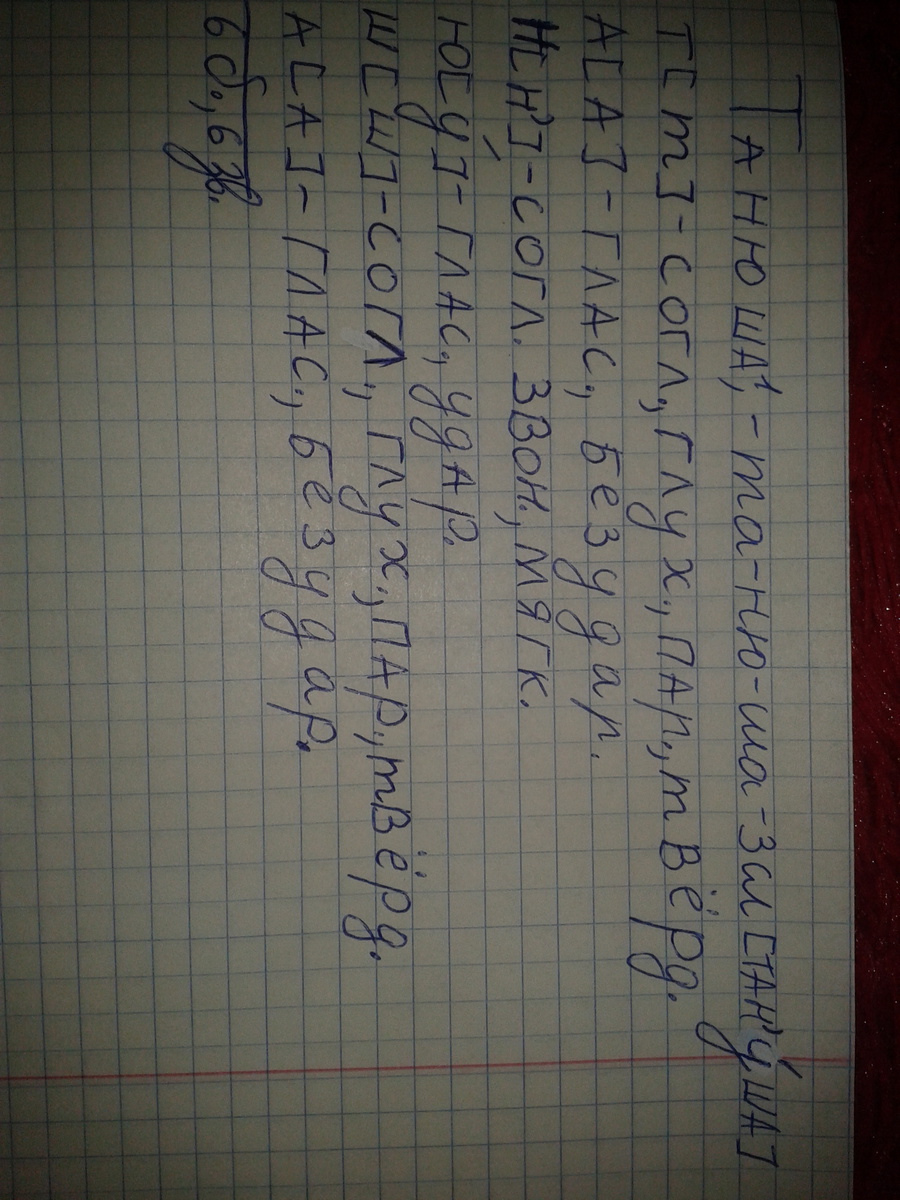 ТАНЮША,¹-та-ню-ша-3ал [ТАН'У́ША]
Т[т]-согл., глух., пар., твёрд.
А[А]-глас., безудар.
Н[Н']-согл. звон., мягк.
Ю[у́]-глас., удар.
Ш[ш]-согл., глух., пар., твёрд.
А[А]-глас., безудар.
6 б., 6 зв.